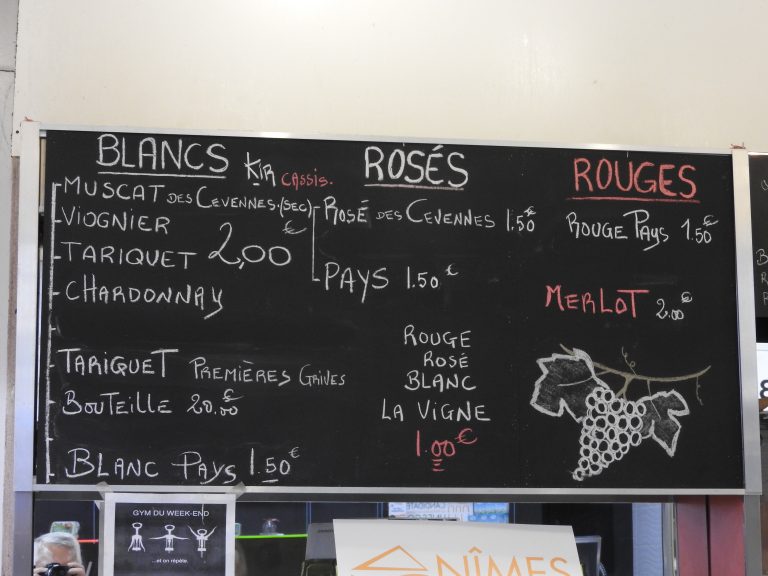 BLANCS
KIR CASSIS.
MUSCAT DES CEVENNES.(SEC)
VIOGNIER
TARIQUET 2,00 €
CHARDONNAY
TARIQUET PREMIÈRES GRIVES
BOUTEILLE 20.00 €
BLANC PAYS 1.50 €
ROSÉS
ROSÉ DES CEVENNES 1.50 €
PAYS 1.50 €
ROUGE
ROSÉ
BLANC
LA VIGNE
1.00 €
ROUGES
ROUGE PAYS 1.50 €
MERLOT 2.00 €
GYM DU WEEK-END
...et on répète.
NÎMES